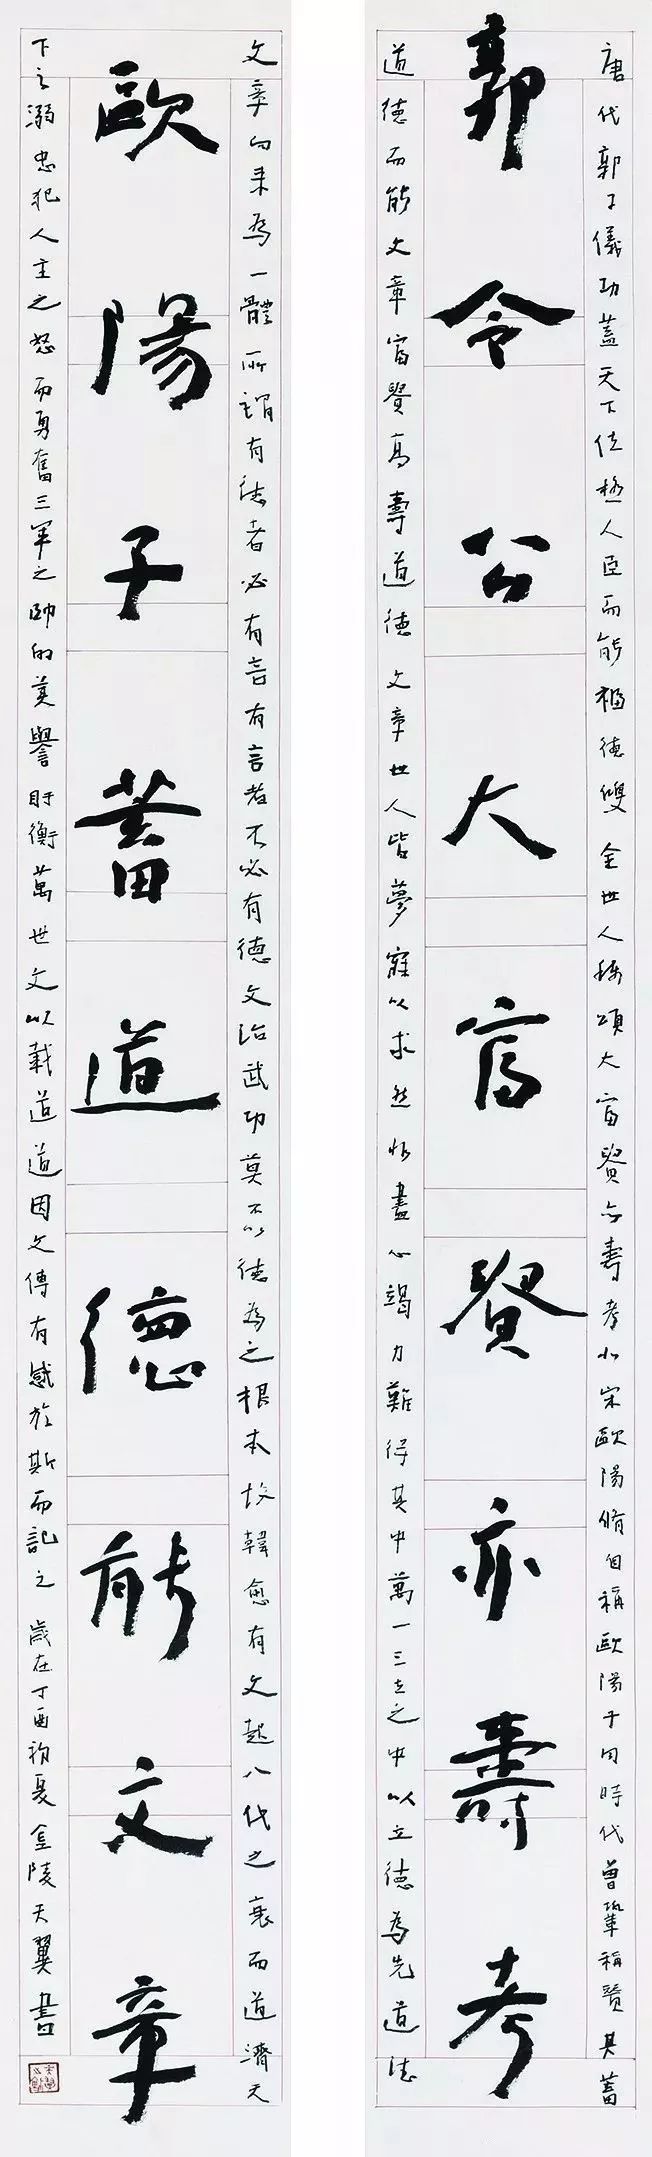 郭令公大富貴亦壽考
唐代郭子儀功蓋天下位極人臣而能福德雙全世人稱頌大富貴亦壽考北宋歐陽脩自稱歐陽子同時代曾鞏稱贊其蓄
道德而能文章富貴高壽道德文章世人皆夢寐以求然非盡心竭力難得其中萬一三立之中以立德為先道德
歐陽子蓄道德能文章
文章向来為一體所謂有德者必有言有言者不必有德文治武功莫不以德為之根本故韓愈有文起八代之衰而道濟天
下之溺忠犯人主之怒而勇奮三軍之帥的美譽盱衡萬世文以載道道因文傳有感於斯而記之歲在丁酉初夏金陵天翼書